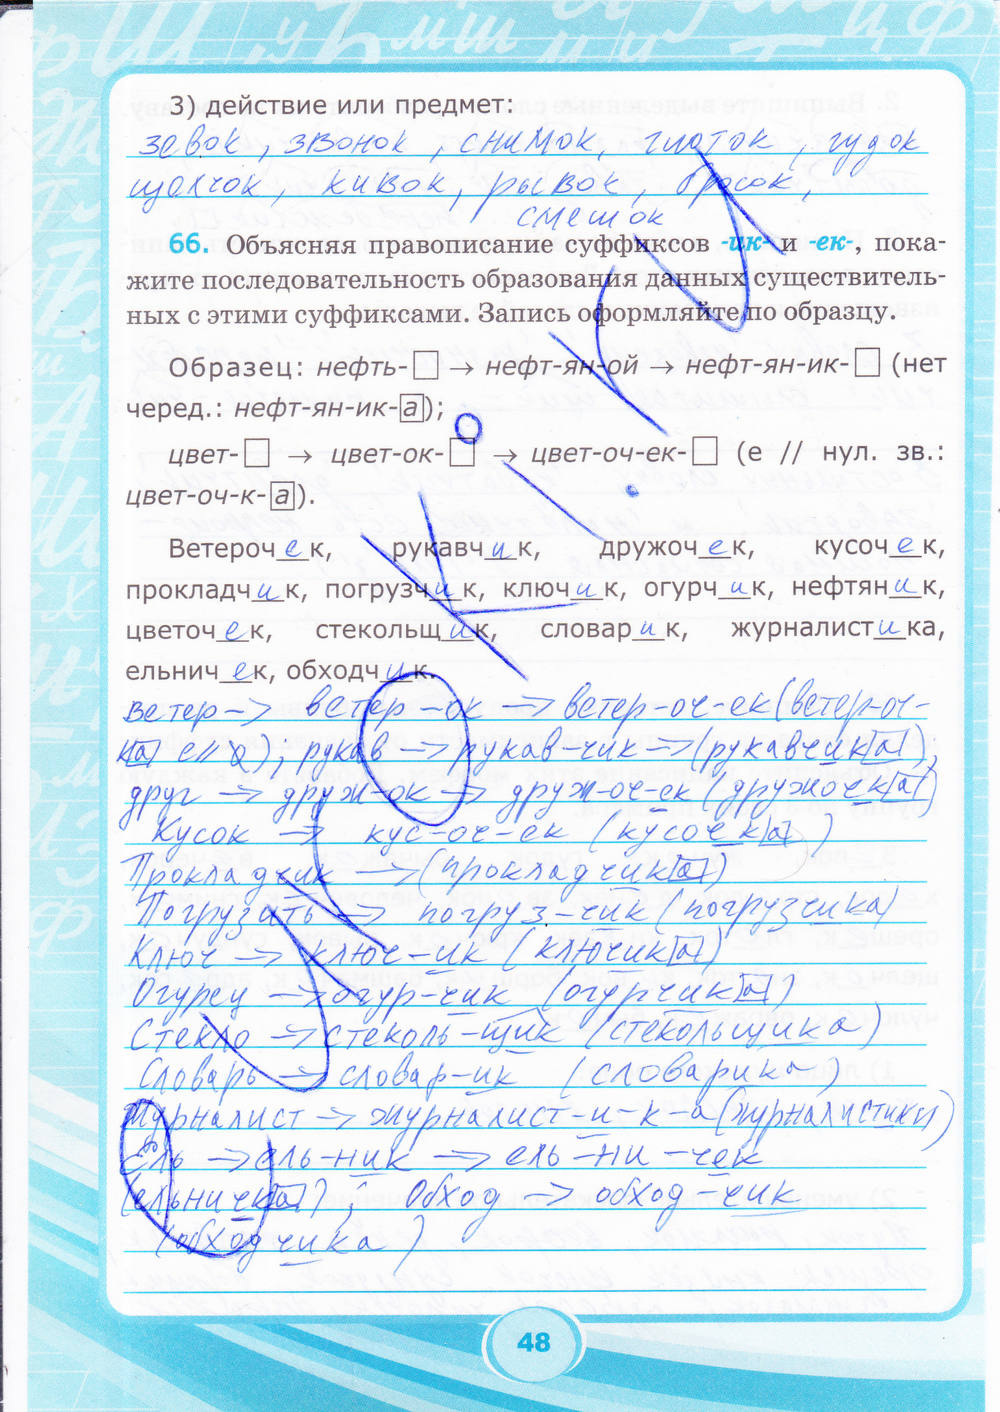 3) действие или предмет:
зевок, звонок, снимок, глоток, гудок
щелчок, кивок, рывок, бросок,
смешок
66. Объясняя правописание суффиксов -ик- и -ек-, пока-
жите последовательность образования данных существитель-
ных с этими суффиксами. Запись оформляйте по образцу.
Образец: нефть-□ → нефт-ян-ой → нефт-ян-ик-□ (нет
черед.: нефт-ян-ик-а);
цвет-□ → цвет-ок-□ → цвет-оч-ек-□ (е // нул. зв.:
цвет-оч-к-а).
Ветероч е к, рукавч и к, дружоч е к, кусоч е к,
прокладч и к, погрузч и к, ключ и к, огурч и к, нефтян и к,
цветоч е к, стекольщ и к, словар и к, журналист и ка,
ельнич е к, обходч и к.
ветер → ветер-ок → ветер-оч-ек (ветер-оч-
ка е//о); рукав → рукав-чик → (рукавчика);
друг → друж-ок → друж-оч-ек (дружочека)
Кусок → кус-оч-ек (кусочека)
Прокладчик → (прокладчика)
Погрузить → погруз-чик (погрузчика)
Ключ → ключ-ик (ключика)
Огурец → огур-чик (огурчика)
Стекло → стеколь-щик (стекольщика)
Словарь → словар-ик (словарика)
Журналист → журналист-и-к-а (журналистики)
Ель → ель-ник → ель-ни-чек
(ельничка); Обход → обход-чик
(обходчика)
uROKI.KU
48